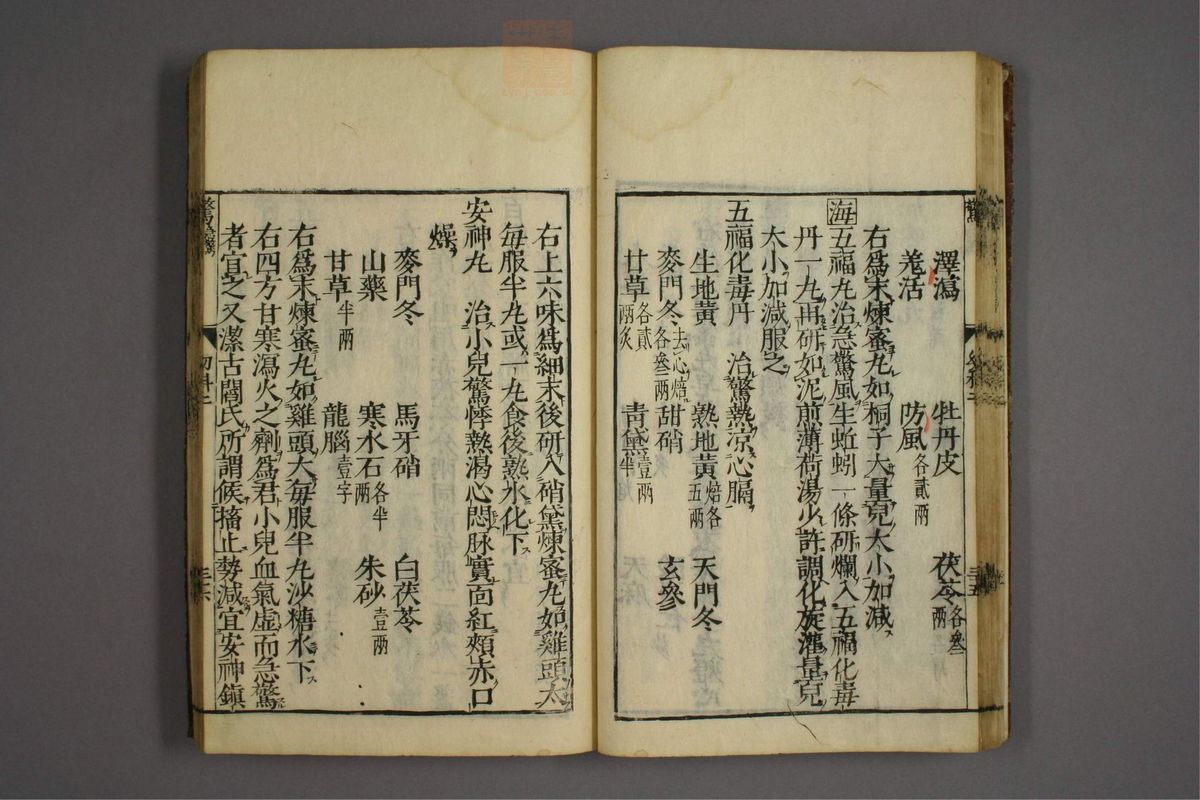 澤瀉 牡丹皮 茯苓各叄兩
羗活 防風各貳兩
右爲末煉蜜丸如桐子大量兒大小加减
海五福丸治急驚風生蚯蚓一條研爛入五福化毒
丹一丸再研如泥煎薄荷湯少許調化旋灌量兒
大小加减服之
五福化毒丹 治驚熱涼心膈
生地黃 熟地黃焙各五兩 天門冬
麥門冬去心焙各叄兩 甜硝 玄參
甘草各貳兩炙 青黛壹兩半
右上六味爲細末後研入硝黛煉蜜丸如雞頭大
每服半丸或一丸食後熟水化下
安神丸 治小兒驚悸熱渴心悶脉實面紅頰赤口
燥
麥門冬 馬牙硝 白茯苓
山藥 寒水石各半兩 朱砂壹兩
甘草半兩 龍腦壹字
右爲末煉蜜丸如雞頭大每服半丸沙糖水下
右四方甘寒瀉火之劑爲君小兒血氣虛而急驚
者宜之又潔古閻氏所謂候搐止勢減宜安神鎮